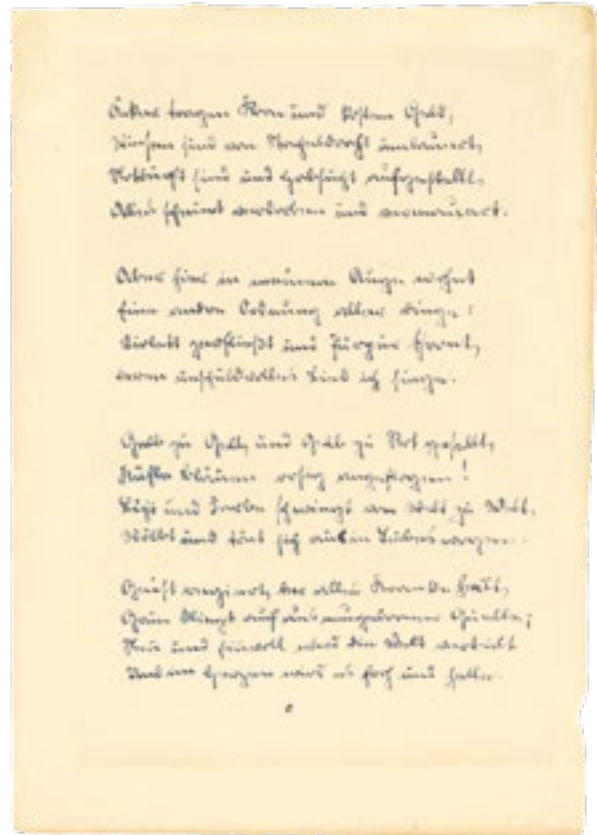 Äcker tragen Korn und kosten Geld,
Wiesen sind von Stacheldraht umlauert,
Notdurft sind und Habsucht aufgestellt,
Alles scheint verdorben und vermauert.
Aber hier in meinem Auge wohnt
Eine andre Ordnung aller Dinge:
Violett zerfließt und Purpur thront,
Deren unschuldvolles Lied ich singe.
Gelb zu Gelb, und Gelb zu Rot gesellt,
Kühle Bläuen rosig angeflogen!
Licht und Farbe schwingt von Welt zu Welt,
Wölbt und tönt sich aus in Liebeswogen.
Geist regiert, der alles Kranke heilt,
Grün klingt auf aus neugeborener Quelle;
Neu und sinnvoll wird die Welt verteilt
Und im Herzen wird es froh und helle.